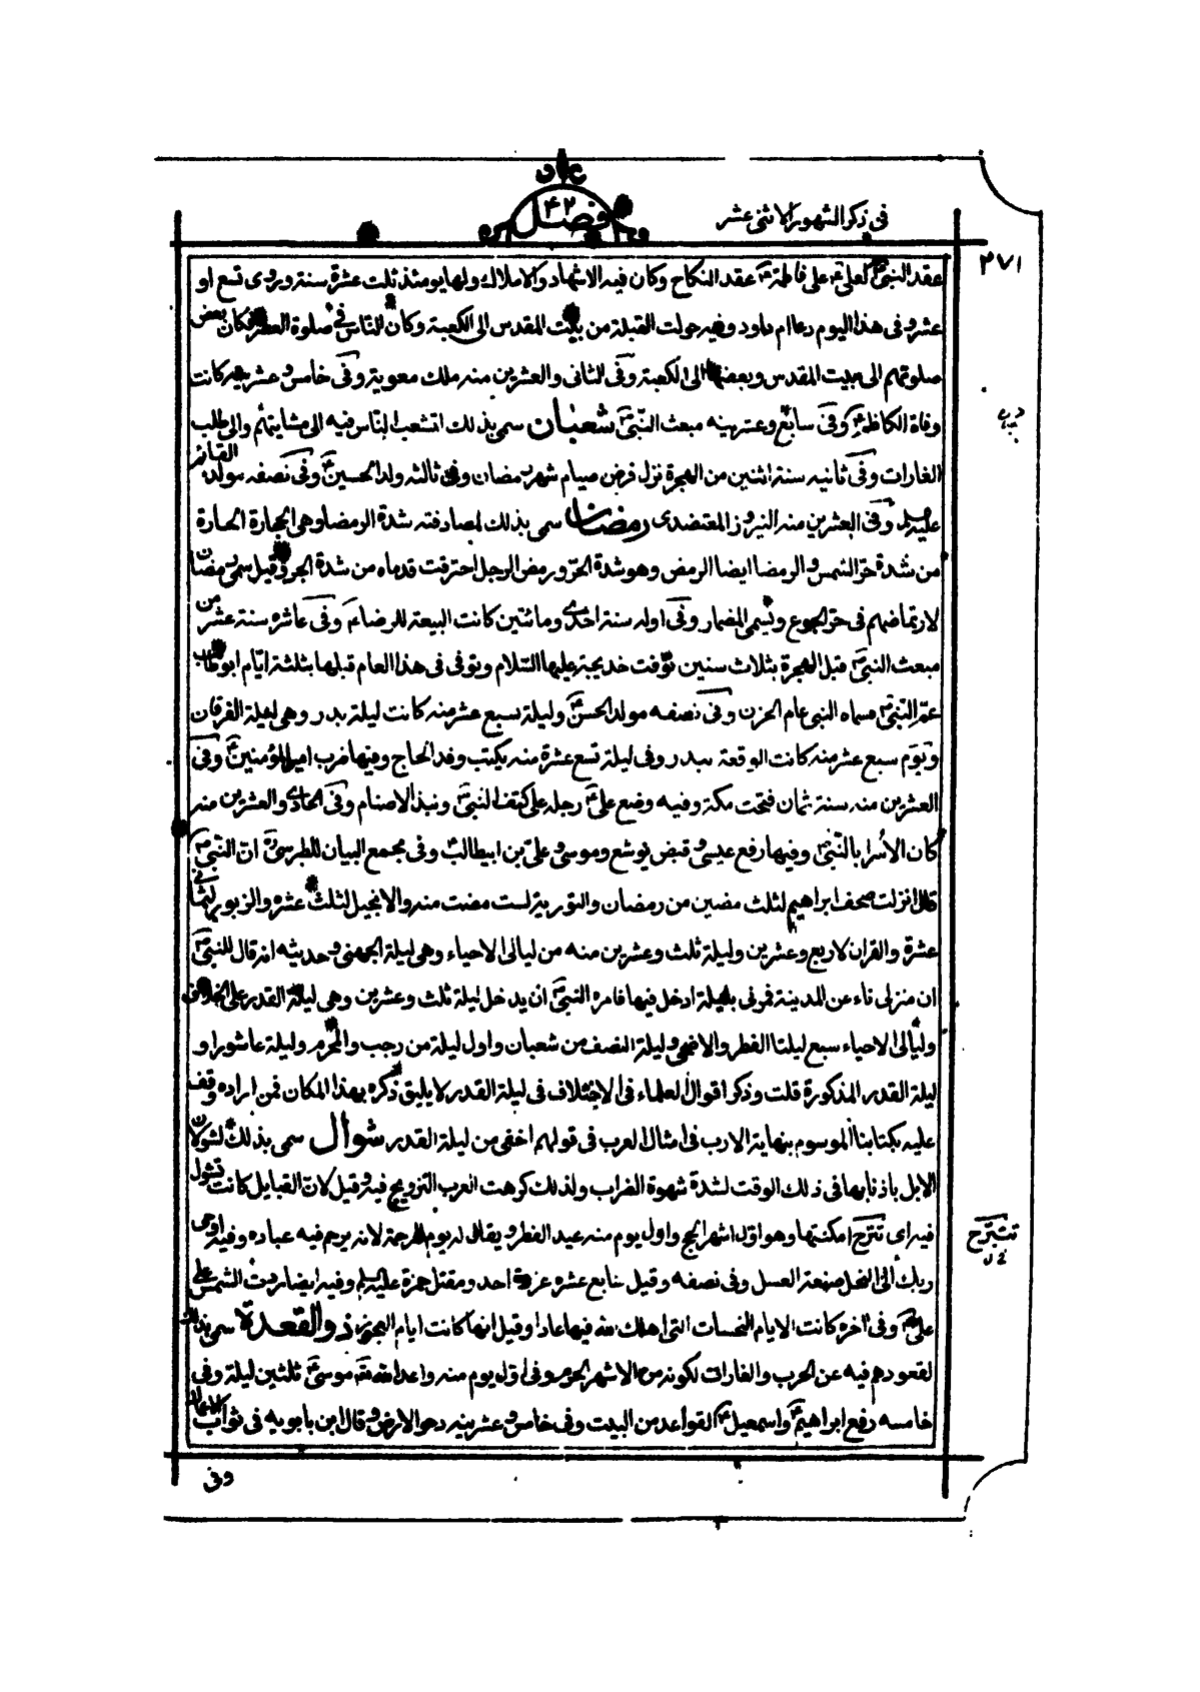 فى ذكر الشهور الاثنى عشر
فصل ۴۲
۲۷۱
عقد النبىّ ص لعلىّ ع على فاطمة ع عقد النكاح وكان فيه الاشهاد والاملاك ولها يومئذ ثلث عشرة سنة وروى تسع او
عشر وفى هذا اليوم دعا ام داود وفيه حولت القبلة من بيت المقدس الى الكعبة وكان الناس فى صلوة العصر فكان بعض
صلوتهم الى بيت المقدس وبعضها الى الكعبة وفى الثانى والعشرين منه ملك معوية وفى خامس وعشريه كانت
وفاة الكاظم ع وفى سابع وعشرينه مبعث النّبىّ ص شعبان سمى بذلك لتشعب الناس فيه الى مشايتهم والى طلب
الغارات وفى ثانيه سنة اثنين من الهجرة نزل فرض صيام شهر رمضان وفى ثالثه ولد الحسين ع وفى نصفه مولد القائم
عليه وفى العشرين منه النيروز المعتضدى رمضان سمى بذلك لمصادفته شدة الرمضا وهى الحجارة الحارة
من شدة حرّ الشمس والرمضا ايضا الرمض وهو شدة الحرّ ورمض الرجل احترقت قدماه من شدة الحر وقيل سمى رمضان
لارتماضهم فى حرّ الجوع ويسمى المضمار وفى اوله سنة احدى ومائتين كانت البيعة للرضا ع وفى عاشره سنة عشر من
مبعث النبىّ ص قبل الهجرة بثلاث سنين توّفت خديجة عليها السّلام وتوفى فى هذا العام قبلها بثلثة ايّام ابو طالب
عمّ النبىّ ص فسماه النبى عام الحزن وفى نصفه مولد الحسن ع وليلة سبع عشر منه كانت ليلة بدر وهى ليلة الفرقان
ويوم سبع عشر منه كانت الوقعة ببدر وفى ليلة تسع عشرة منه يكتب وفد الحاج وفيها ضرب امير المؤمنين ع وفى
العشرين منه سنة ثمان فتحت مكة وفيه وضع علىّ ع رجله على كتف النبىّ ص ونبذ الاصنام وفى الحادى والعشرين منه
كان الأسرا بالنّبىّ ص وفيها رفع عيسى وقبض يوشع وموسى وعلىّ بن ابيطالب ع وفى مجمع البيان للطبرسى ره انّ النّبىّ ص
قال انزلت صحف ابراهيم لثلث مضين من رمضان والتورية لست مضت منه والانجيل لثلث عشره والزبور لثمانى
عشرة والقران لاربع وعشرين وليلة ثلث وعشرين منه من ليالى الاحياء وهى ليلة الجهنى وحديثه انه قال للنبىّ ص
ان منزلى ناء عن المدينة فمرنى بليلة ادخل فيها فامره النبىّ ص ان يدخل ليلة ثلث وعشرين وهى ليلة القدر على الخلاف
وليالى الاحياء سبع ليلتا الفطر والاضحى وليلة النصف من شعبان واول ليلة من رجب والمحرم وليلة عاشورا و
ليلة القدر المذكورة قلت وذكر اقوال العلماء فى الاختلاف فى ليلة القدر لا يليق ذكره بهذا المكان فمن اراده وقف
عليه بكتابنا الموسوم بنهاية الارب فى امثال العرب فى قولهم اخفى من ليلة القدر شوال سمى بذلك لشولان
الابل باذنابها فى ذلك الوقت لشدة شهوة الضراب ولذلك كرهت العرب التزويج فيه وقيل لانّ القبايل كانت تشول
فيه اى تتبرّح امكنتها وهو اوّل اشهر الحج واول يوم منه عيد الفطر ويقال له يوم الرحمة لانه يرحم فيه عباده وفيه اوحى
ربك الى النحل صنعة العسل وفى نصفه وقيل سابع عشره غزوة احد ومقتل حمزة عليه وفيه ايضا ردّت الشمس على
علىّ ع وفى اخره كانت الايام النحسات التى اهلك الله فيها عادا وقيل انها كانت ايام العجوز ذو القعدة سمى بذلك
لقعودهم فيه عن الحرب والغارات لكونه من الاشهر الحرم وفى اوّل يوم منه واعد الله موسى ع ثلثين ليلة وفى
خامسه رفع ابراهيم ع واسمعيل ع القواعد من البيت وفى خامس وعشرينه دحو الارض وقال ابن بابويه فى ثواب الاعمال
تتبرّح
خ ل
وفى